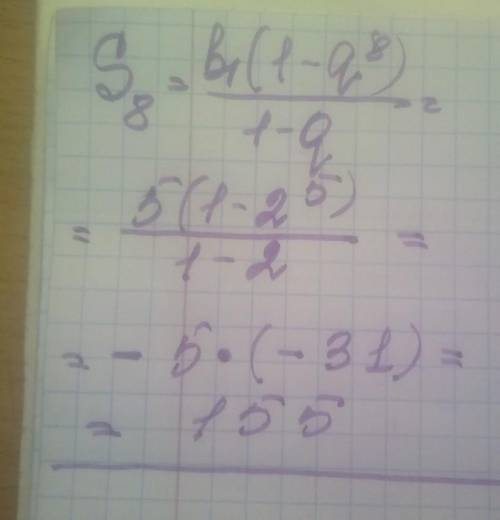 S₈ = b₁(1-q⁸)/(1-q) =
= 5(1-2⁵)/(1-2) =
= - 5 · (- 31) =
= 155